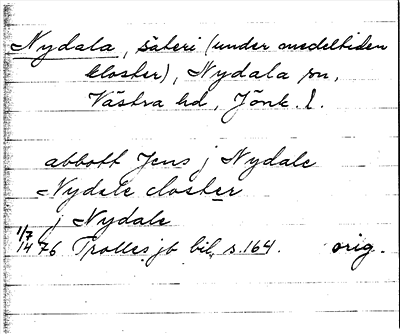 Nydala, säteri (under medeltiden
kloster), Nydala sn,
Västra hd, Jönk. l.
abbott Jens j Nydale
Nydale closter
j Nydale
1/7 1476 Trolles jb bil, s. 164. orig.